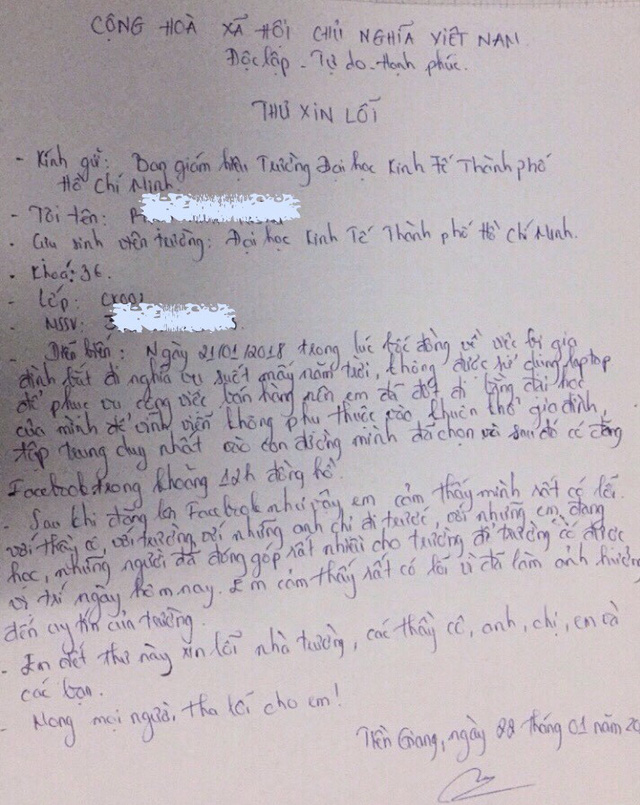 CỘNG HOÀ XÃ HỘI CHỦ NGHĨA VIỆT NAM
Độc lập - Tự do - Hạnh phúc.
THƯ XIN LỖI
- Kính gửi: Ban giám hiệu Trường Đại học Kinh Tế Thành phố
Hồ Chí Minh.
- Tôi tên:
- Cựu sinh viên trường: Đại học Kinh Tế Thành phố Hồ Chí Minh.
- Khoá: 36.
- Lớp:
- MSSV:
- Diễn biến: Ngày 21/01/2018 trong lúc bốc đồng về việc bị gia
đình bắt đi nghĩa vụ suốt mấy năm trời, không được sử dụng laptop
để phục vụ công việc bán hàng nên em đã đốt đi bằng đại học
của mình để vĩnh viễn không phụ thuộc vào khuôn khổ gia đình,
tập trung duy nhất vào con đường mình đã chọn và sau đó có đăng
Facebook trong khoảng 12h đồng hồ.
- Sau khi đăng lên Facebook như vậy em cảm thấy mình rất có lỗi
với thầy cô, với trường, với những anh chị đi trước, với những em đang
học, những người đã đóng góp rất nhiều cho trường để trường có được
vị trí ngày hôm nay. Em cảm thấy rất có lỗi vì đã làm ảnh hưởng
đến uy tín của trường.
- Em viết thư này xin lỗi nhà trường, các thầy cô, anh, chị, em và
các bạn.
- Mong mọi người tha lỗi cho em!
Tiền Giang, ngày 22 tháng 01 năm 20